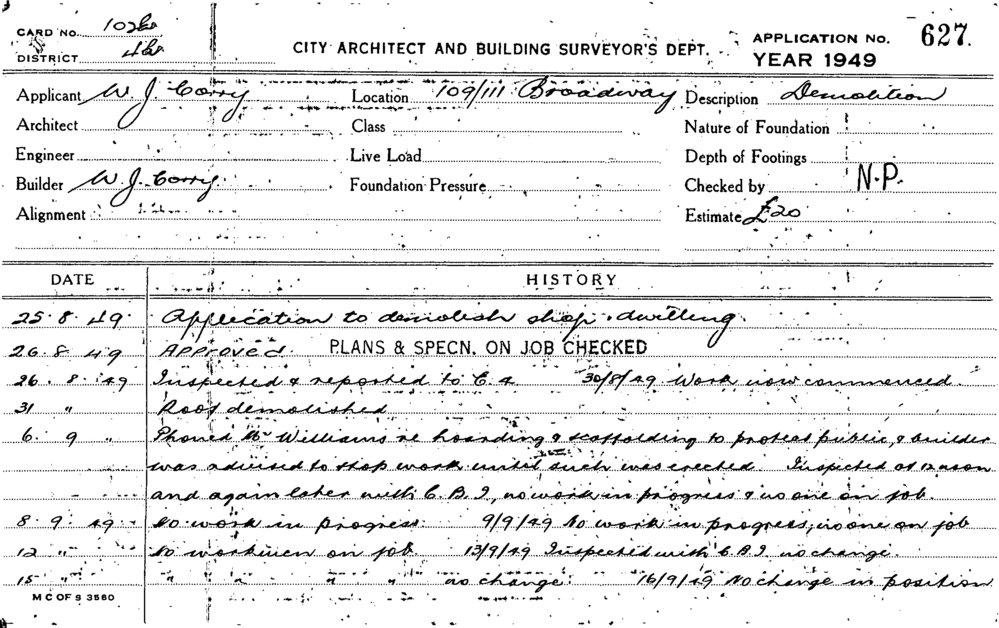 CARD NO.
DISTRICT
CITY ARCHITECT AND BUILDING SURVEYOR'S DEPT.
APPLICATION NO. 627.
YEAR 1949
Applicant W. J. Corry Location 109/111 Broadway Description Demolition
Architect Class Nature of Foundation
Engineer Live Load Depth of Footings
Builder W. J. Corry Foundation Pressure Checked by N.P.
Alignment Estimate £20
DATE HISTORY
25.8.49. Application to demolish shop & dwelling.
26.8.49 Approved. PLANS & SPECN. ON JOB CHECKED
26.8.49 Inspected & reported to C.A. 30/8/49 Work now commenced.
31 " Roof demolished
6. 9 " Phoned Mr Williams re hoarding & scaffolding to protect public, & builder
was advised to stop work until such was erected. Inspected at 12 noon
and again later with C.B.I., no work in progress & no one on job.
8.9.49 No work in progress. 9/9/49 No work in progress, no one on job
12 " No workmen on job. 13/9/49 Inspected with C.B.I. no change.
15 " " " " " no change. 16/9/49 No change in position
M C OF S 3560